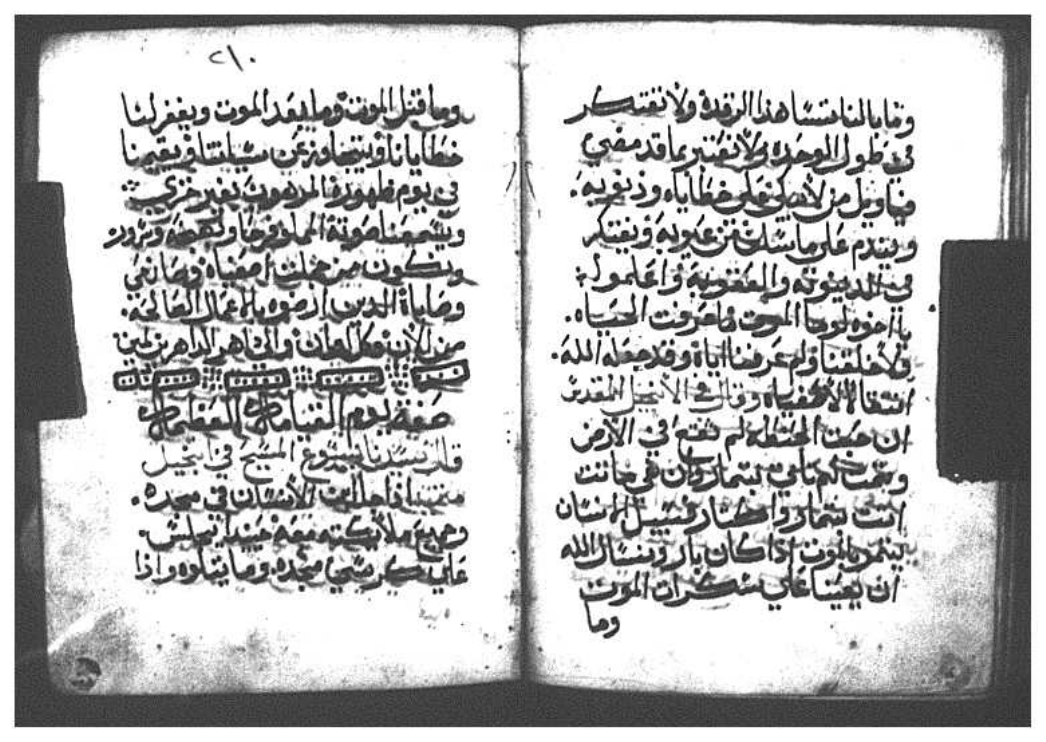 وما بالنا نتنسا هذا الرقده ولا نفتكر
في طول الوحده ولا نعتبر بما قد مضي
فيا ويل من لا يبكي علي خطاياه وذنوبه.
ويندم علي ما سلف من عيوبه ويفتكر
في الدينونه والعقوبه واعلموا
يا اخوه لولا الموت ما عرفت الحياه.
ولا خلقنا ولا عرفنا اياه وقد جعله الله
انتقالا للاصفياه وقال في الانجيل المقدس
ان حبت الحنطه لم تقع في الارض
وتمت لم تاتي بتمار وان هي ماتت
اتت بتمار واكتار فسبيل الانسان
يتمر بالموت اذا كان بار ونسال الله
ان يعيننا علي سكرات الموت
وما
٢١٠
وما قبل الموت وما بعد الموت ويغفر لنا
خطايانا ويتجاوز عن سياتنا ويقيمنا
في يوم ظهوره المرهوب بغير خزي
ويسمعنا صوته المملو فرحا وبهجه وسرور
ونكون من جملت اصفياه وصانعي
وصاياه الدين ارضوه بالاعمال الصالحه.
من الان وكل اوان والي دهر الداهرين امين
صفة يوم القيامه العظما
قال سيدنا يسوع المسيح في انجيل
متي اذا جا ابن الانسان في مجده.
وجميع ملايكته معه حينيدا يجلس.
علي كرسي مجده وما يتلوه واذا